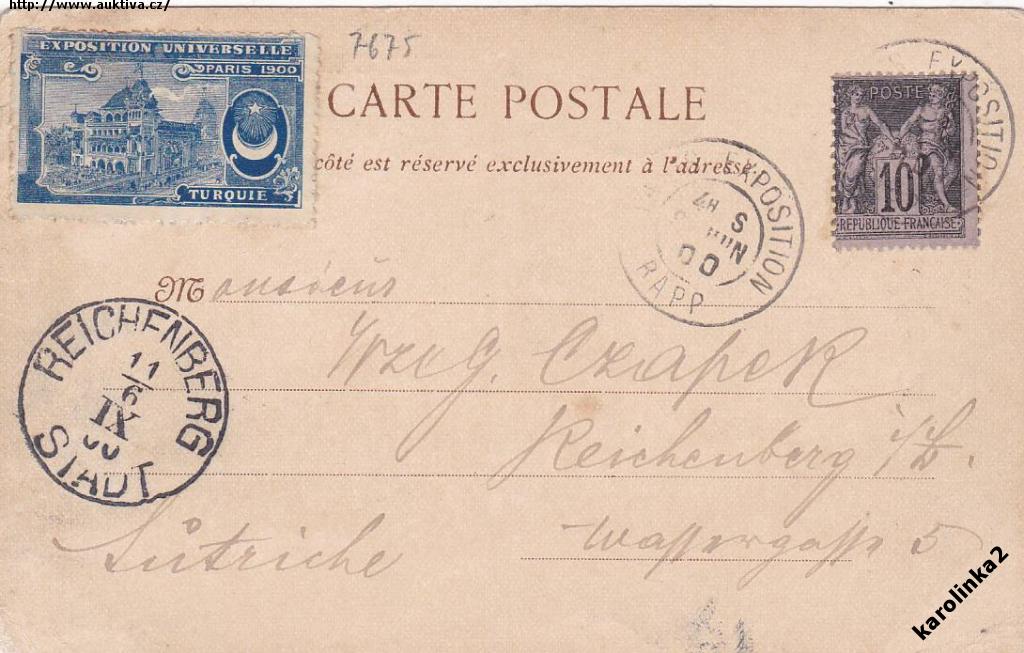 http://www.auktiva.cz/
EXPOSITION UNIVERSELLE
PARIS 1900
TURQUIE
7675
CARTE POSTALE
côté est réservé exclusivement à l'adresse.
EXPOSITION
RAPP
4H S
JUIN
00
EXPOSITIO
POSTE
10
RÉPUBLIQUE FRANÇAISE
Monsieur
G. Czapek
Reichenberg i/B.
Wassergasse 5
Autriche
REICHENBERG
11
6
IX
00
STADT
karolinka2